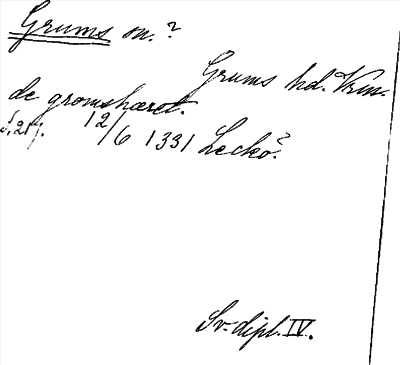 Grums sn.?
Grums hd. Vrm.
de gromshæret.
S. 217. 12/6 1331 Leckö?
Sv. dipl. IV.